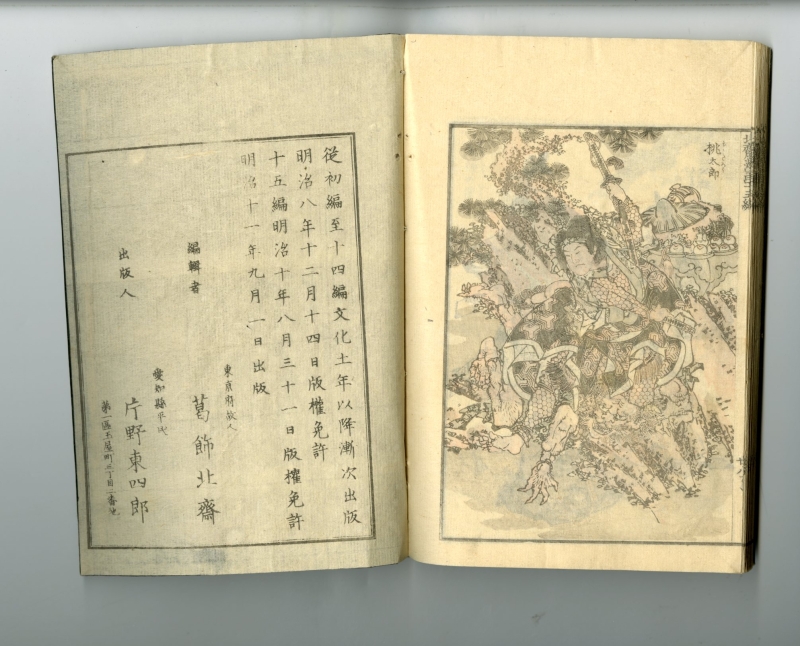 桃太郎
從初編至十四編文化十一年以降漸次出版
明治八年十二月十四日版權免許
十五編明治十年八月三十一日版權免許
明治十一年九月一日出版
東京府故人
編輯者 葛飾北齋
愛知縣平民
出版人 片野東四郎
第一區玉屋町三丁目二番地